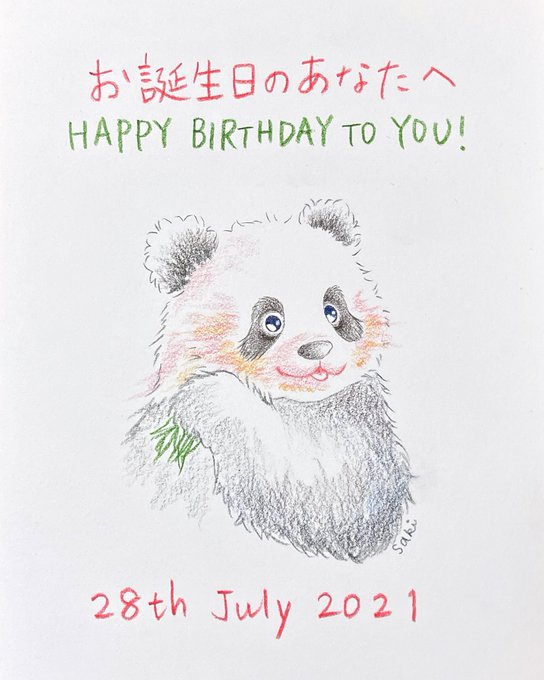 お誕生日のあなたへ
HAPPY BIRTHDAY TO YOU!
saki
28th July 2021